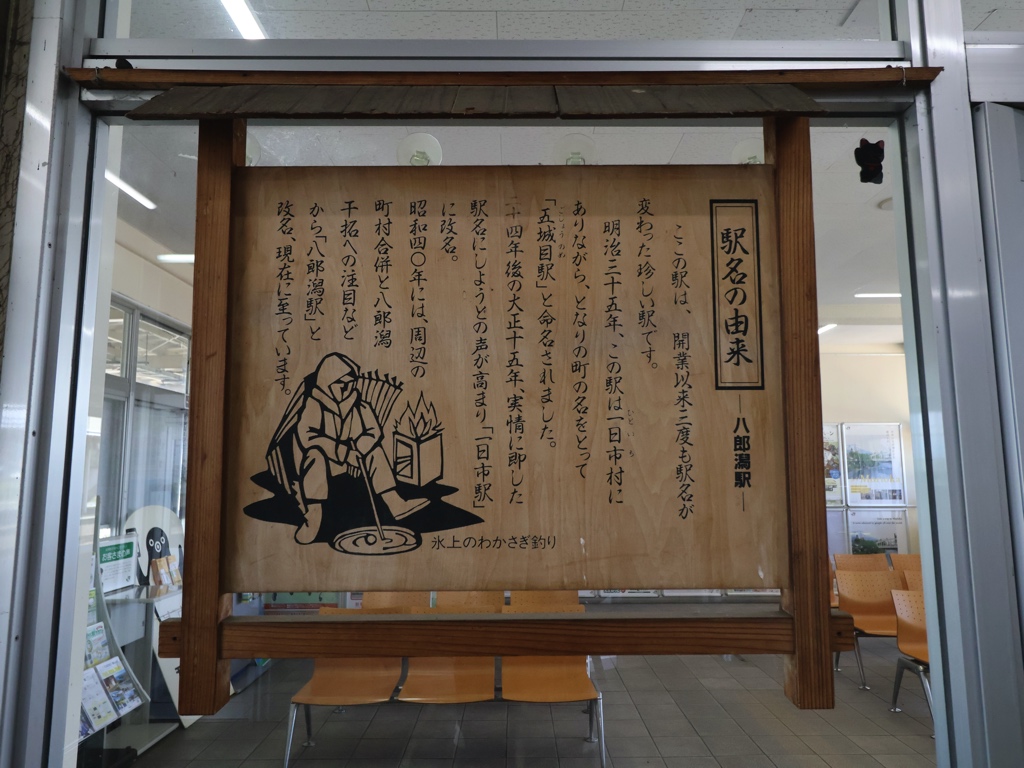 駅名の由来
―八郎潟駅―
ここの駅は、開業以来二度も駅名が
変わった珍しい駅です。
明治三十五年、この駅は一日市村に
ありながら、となりの町の名をとって
「五城目駅」と命名されました。
二十四年後の大正十五年、実情に即した
駅名にしようとの声が高まり「一日市駅」
に改名。
昭和四〇年には、周辺の
町村合併と八郎潟
干拓への注目など
から「八郎潟駅」と
改名、現在に至っています。
氷上のわかさぎ釣り